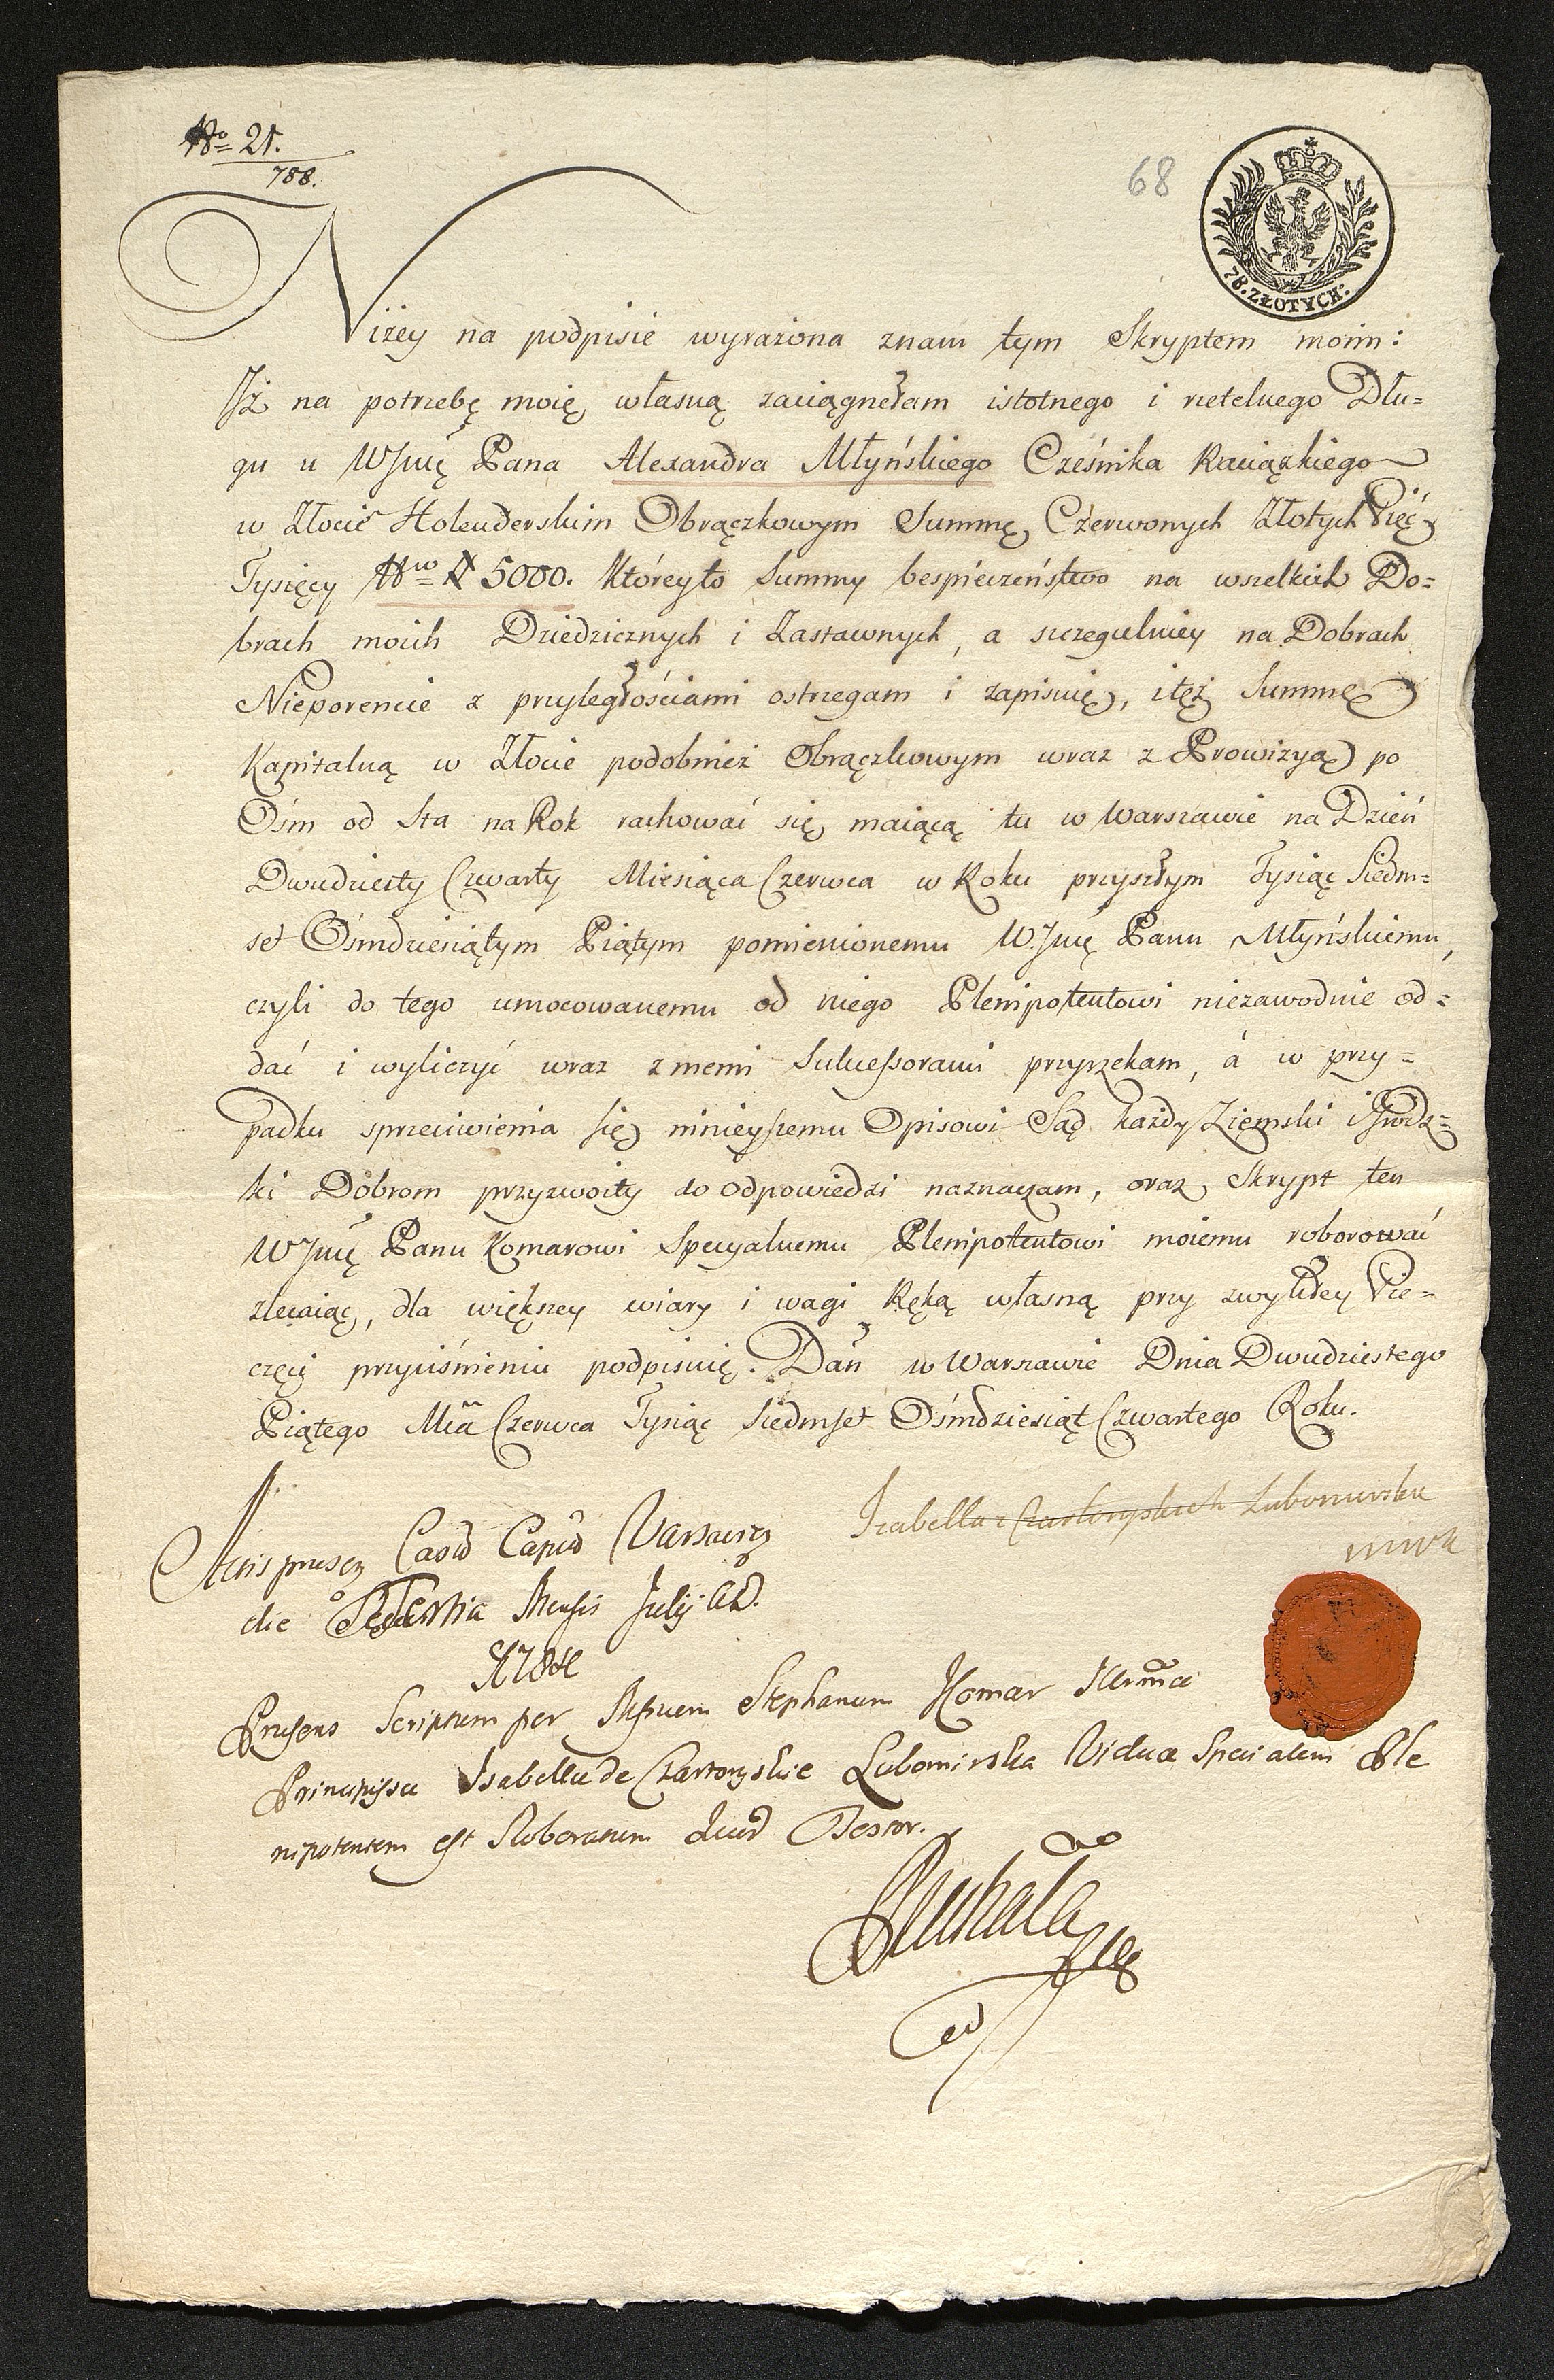 No 21.
788.
68
78. ZŁOTYCH.
Niżey na podpisie wyrażona znam tym Skryptem moim:
Jż na potrzebę moię własną zaciągnełam istotnego i rzetelnego Dłu=
gu u WJmę Pana Alexandra Młyńskiego Cześnika Raciązkiego
w Złocie Holenderskim Obrączkowym Summę Czerwonych Złotych Pięć
Tysięcy Nro # 5000. Któreyto Summy bespieczeństwo na wszelkich Do=
brach moich Dziedzicznych i Zastawnych, a szczegulniey na Dobrach
Nieporencie z przyległościami ostrzegam i zapisuię, iteż Summę
Kapitalną w Złocie podobnież Obrączkowym wraz z Prowizyą po
Ośm od Sta na Rok rachować się maiącą tu w Warszawie na Dzień
Dwudziesty Czwarty Miesiąca Czerwca w Roku przyszłym Tysiąc Siedm=
set Ośmdziesiątym Piątym pomienionemu WJmę Panu Młyńskiemu,
czyli do tego umocowanemu od niego Plenipotentowi niezawodnie od=
dać i wyliczyć wraz z memi Sukcessorami przyrzekam, á w przy=
padku sprzeciwienia się ninieyszemu Opisowi Sąd każdy Ziemski i Grodz=
ki Dobrom przyzwoity do odpowiedzi naznaczam, oraz Skrypt ten
WJmę Panu Komarowi Specyalnemu Plenipotentowi moiemu roborować
zlecaiąc, dla większey wiary i wagi Ręką własną przy zwykłey Pie=
częci przyciśnieniu podpisuię. Dań w Warszawie Dnia Dwudziestego
Piątego Mĩa Czerwca Tysiąc Siedmset Ośmdziesiąt Czwartego Roku.
Izabella z Czartoryskich Lubomirska
Actis presen Varsavien
die Mensis Julij AD.
1784
Presens Scriptum per Stephanum Komar
Principissa Isabella de Czartoryskie Lubomirska Vidua Specialem Ple
nipotentem est Roboratum Quod Testor.